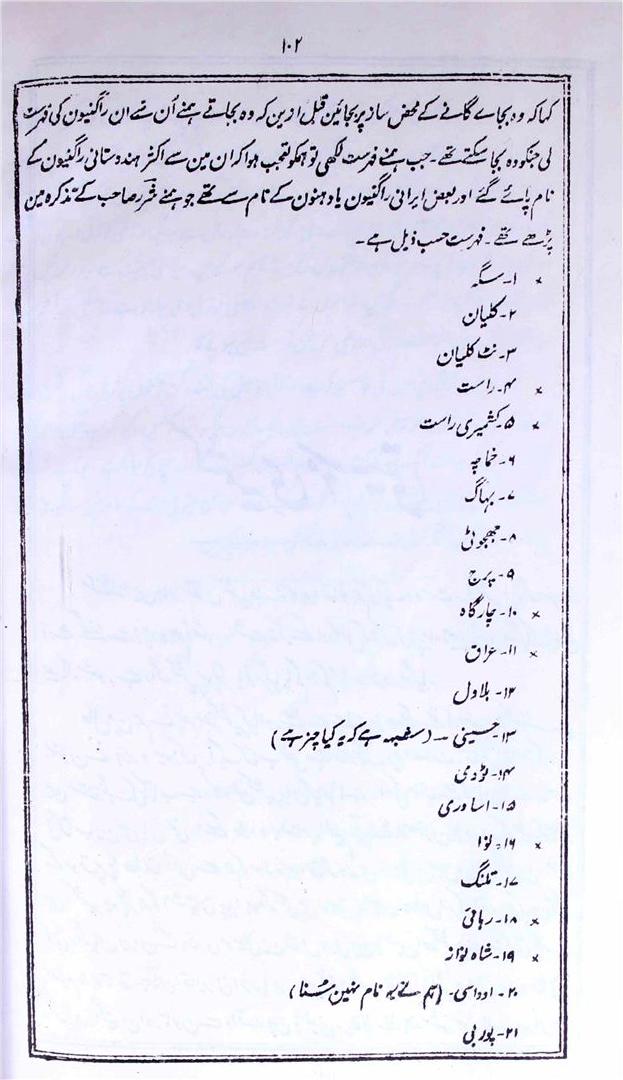 ۱۰۲
کہا کہ وہ بجاے گانے کے محض ساز پر بجائین قبل ازین کہ وہ بجاتے ہمنے اُن سے ان راگنیون کی فہرست
لی جنکو وہ بجا سکتے تھے۔ جب ہمنے فہرست لکھی تو ہمکو تعجب ہوا کہ ان مین سے اکثر ہندوستانی راگنیون کے
نام پائے گئے اور بعض ایرانی راگنیون یا دہنون کے نام سے تھے جو ہمنے شرر صاحب کے تذکرہ مین
پڑھے تھے۔ فہرست حسب ذیل ہے۔
* ۱۔ سگہ
۲۔ کلیان
۳۔ نٹ کلیان
* ۴۔ راست
* ۵۔ کشمیری راست
۶۔ خماچہ
۷۔ بہاگ
۸۔ جھجوٹی
۹۔ پرج
* ۱۰۔ چارگاہ
* ۱۱۔ عراق
۱۲۔ بلاول
۱۳۔ حسینی ۔۔ (شبہہ ہے کہ یہ کیا چیز ہے)
۱۴۔ ٹوڈی
۱۵۔ اساوری
* ۱۶۔ نوا
۱۷۔ تلنگ
* ۱۸۔ رہافی
* ۱۹۔ شاہ نواز
۲۰۔ اوداسی۔ (ہم نے یہ نام نہین سُنا)
۲۱۔ پوربی